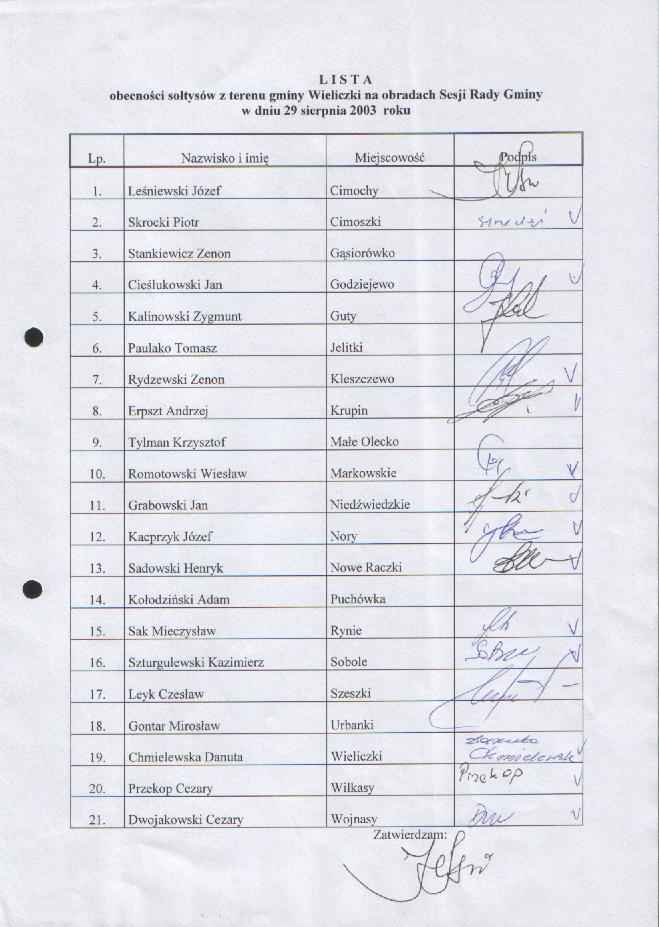 L I S T A
obecności sołtysów z terenu gminy Wieliczki na obradach Sesji Rady Gminy
w dniu 29 sierpnia 2003 roku
Lp. Nazwisko i imię Miejscowość Podpis
1. Leśniewski Józef Cimochy
2. Skrocki Piotr Cimoszki
3. Stankiewicz Zenon Gąsiorówko
4. Cieślukowski Jan Godziejewo
5. Kalinowski Zygmunt Guty
6. Paulako Tomasz Jelitki
7. Rydzewski Zenon Kleszczewo
8. Erpszt Andrzej Krupin
9. Tylman Krzysztof Małe Olecko
10. Romotowski Wiesław Markowskie
11. Grabowski Jan Niedźwiedzkie
12. Kacprzyk Józef Nory
13. Sadowski Henryk Nowe Raczki
14. Kołodziński Adam Puchówka
15. Sak Mieczysław Rynie
16. Szturgulewski Kazimierz Sobole
17. Leyk Czesław Szeszki
18. Gontar Mirosław Urbanki
19. Chmielewska Danuta Wieliczki Danuta Chmielewska
20. Przekop Cezary Wilkasy Przekop
21. Dwojakowski Cezary Wojnasy
Zatwierdzam: